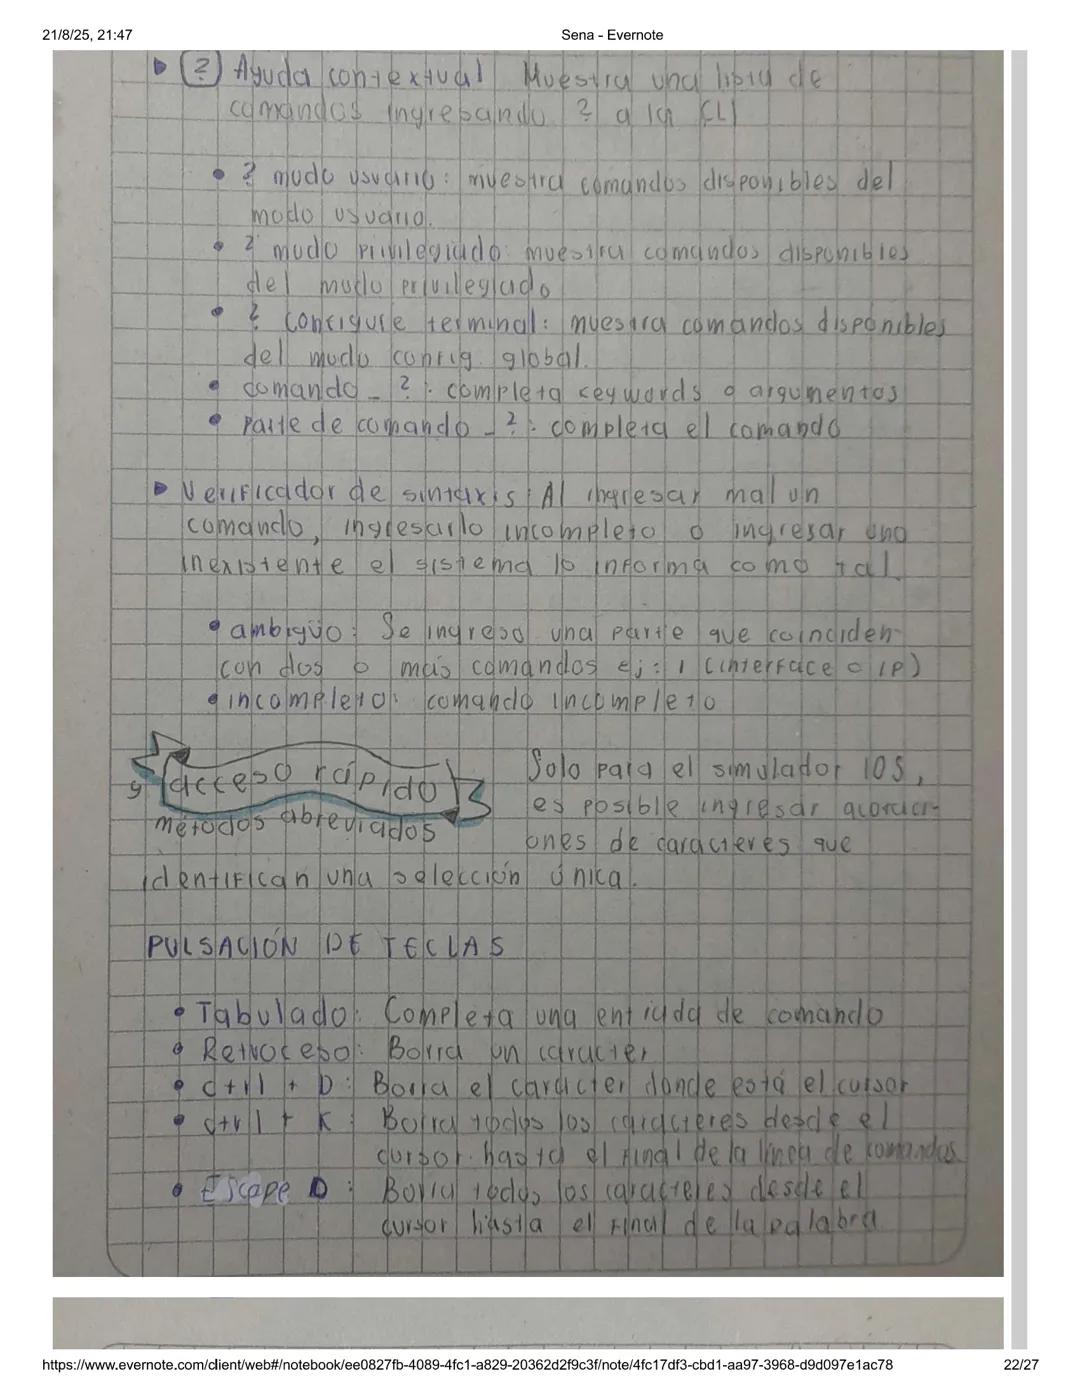 21/8/25, 21:47 Sena - Evernote
? Ayuda contextual Muestra una lista de
comandos ingresando ? a la CLI
? modo usuario: muestra comandos disponibles del
modo usuario.
? modo privilegiado: muestra comandos disponibles
del modo privilegiado
? configure terminal: muestra comandos disponibles
del modo config. global.
comando _ ? : completa keywords o argumentos
parte de comando _ ? : completa el comando
Verificador de sintaxis: Al ingresar mal un
comando, ingresarlo incompleto o ingresar uno
inexistente el sistema lo informa como tal
ambigüo: Se ingresa una parte que coinciden
con dos o más comandos ej: i (interface o IP)
incompleto: comando incompleto
y acceso rápido
métodos abreviados
Solo para el simulador IOS,
es posible ingresar
ones de caracteres que
identifican una selección única.
PULSACIÓN DE TECLAS
Tabulado: Completa una entrada de comando
Retroceso: Borra un caracter
ctrl + D: Borra el carácter donde está el cursor
ctrl + K: Borra todos los caracteres desde el
cursor hasta el final de la línea de comandos
Escape D: Borra todos los caracteres desde el
cursor hasta el final de la palabra
https://www.evernote.com/client/web#/notebook/ee0827fb-4089-4fc1-a829-20362d2f9c3f/note/4fc17df3-cbd1-aa97-3968-d9d097e1ac78 22/27